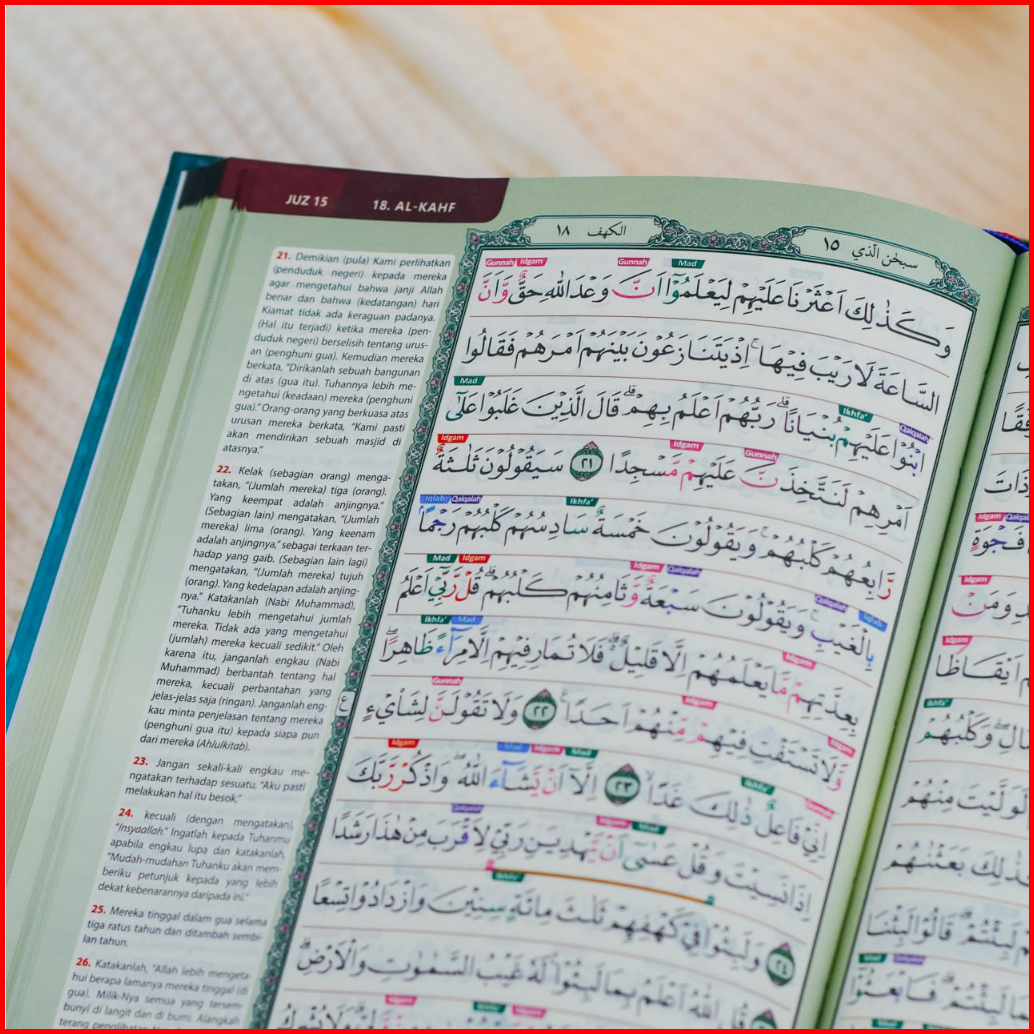 JUZ 15
18. AL-KAHF
21. Demikian (pula) Kami perlihatkan
(penduduk negeri) kepada mereka
agar mengetahui bahwa janji Allah
benar dan bahwa (kedatangan) hari
Kiamat tidak ada keraguan padanya.
(Hal itu terjadi) ketika mereka (pen-
duduk negeri) berselisih tentang urus-
an (penghuni gua). Kemudian mereka
berkata, "Dirikanlah sebuah bangunan
di atas (gua itu). Tuhannya lebih me-
ngetahui (keadaan) mereka (penghuni
gua)." Orang-orang yang berkuasa atas
urusan mereka berkata, "Kami pasti
akan mendirikan sebuah masjid di
atasnya."
22. Kelak (sebagian orang) menga-
takan, "(Jumlah mereka) tiga (orang).
Yang keempat adalah anjingnya."
(Sebagian lain) mengatakan, "(Jumlah
mereka) lima (orang). Yang keenam
adalah anjingnya," sebagai terkaan ter-
hadap yang gaib. (Sebagian lain lagi)
mengatakan, "(Jumlah mereka) tujuh
(orang). Yang kedelapan adalah anjing-
nya." Katakanlah (Nabi Muhammad),
"Tuhanku lebih mengetahui jumlah
mereka. Tidak ada yang mengetahui
(jumlah) mereka kecuali sedikit." Oleh
karena itu, janganlah engkau (Nabi
Muhammad) berbantah tentang hal
mereka, kecuali perbantahan yang
jelas-jelas saja (ringan). Janganlah eng-
kau minta penjelasan tentang mereka
(penghuni gua itu) kepada siapa pun
dari mereka (Ahlulkitab).
23. Jangan sekali-kali engkau me-
ngatakan terhadap sesuatu, "Aku pasti
melakukan hal itu besok,"
24. kecuali (dengan mengatakan),
"Insyaallah." Ingatlah kepada Tuhanmu
apabila engkau lupa dan katakanlah,
"Mudah-mudahan Tuhanku akan mem-
beriku petunjuk kepada yang lebih
dekat kebenarannya daripada ini."
25. Mereka tinggal dalam gua selama
tiga ratus tahun dan ditambah sembi-
lan tahun.
26. Katakanlah, "Allah lebih mengeta-
hui berapa lamanya mereka tinggal (di
gua). Milik-Nya semua yang tersem-
bunyi di langit dan di bumi. Alangkah
سبحٰن الّذي ١٥
الكهف ١٨
Gunnah Idgam Gunnah Mad
وَكَذٰلِكَ اَعْثَرْنَا عَلَيْهِمْ لِيَعْلَمُوْٓا اَنَّ وَعْدَ اللّٰهِ حَقٌّ وَّاَنَّ
السَّاعَةَ لَا رَيْبَ فِيْهَاۚ اِذْ يَتَنَازَعُوْنَ بَيْنَهُمْ اَمْرَهُمْ فَقَالُوا
Mad Ikhfa' Qalqalah
ابْنُوْا عَلَيْهِمْ بُنْيَانًاۗ رَبُّهُمْ اَعْلَمُ بِهِمْۗ قَالَ الَّذِيْنَ غَلَبُوْا عَلٰٓى
Idgam Idgam Gunnah
اَمْرِهِمْ لَنَتَّخِذَنَّ عَلَيْهِمْ مَّسْجِدًا ٢١ سَيَقُوْلُوْنَ ثَلٰثَةٌ
Iqlab Qalqalah Ikhfa'
رَّابِعُهُمْ كَلْبُهُمْۚ وَيَقُوْلُوْنَ خَمْسَةٌ سَادِسُهُمْ كَلْبُهُمْ رَجْمًاۢ
Mad Idgam Idgam Qalqalah Qalqalah Iqlab
بِالْغَيْبِۚ وَيَقُوْلُوْنَ سَبْعَةٌ وَّثَامِنُهُمْ كَلْبُهُمْۗ قُلْ رَّبِّيْٓ اَعْلَمُ
Ikhfa' Mad Idgam
بِعِدَّتِهِمْ مَّا يَعْلَمُهُمْ اِلَّا قَلِيْلٌ ەۗ فَلَا تُمَارِ فِيْهِمْ اِلَّا مِرَاۤءً ظَاهِرًاۖ
Gunnah Idgam Idgam
وَّلَا تَسْتَفْتِ فِيْهِمْ مِّنْهُمْ اَحَدًاࣖ ٢٢ وَلَا تَقُوْلَنَّ لِشَا۟يْءٍ
ع
Idgam Mad Idgam Mad Ikhfa' Gunnah
اِنِّيْ فَاعِلٌ ذٰلِكَ غَدًاۙ ٢٣ اِلَّآ اَنْ يَّشَاۤءَ اللّٰهُۖ وَاذْكُرْ رَّبَّكَ
Qalqalah Idgam Mad
اِذَا نَسِيْتَ وَقُلْ عَسٰٓى اَنْ يَّهْدِيَنِ رَبِّيْ لِاَقْرَبَ مِنْ هٰذَا رَشَدًا
Ikhfa'
٢٤ وَلَبِثُوْا فِيْ كَهْفِهِمْ ثَلٰثَ مِائَةٍ سِنِيْنَ وَازْدَادُوْا تِسْعًا
٢٥ قُلِ اللّٰهُ اَعْلَمُ بِمَا لَبِثُوْاۚ لَهٗ غَيْبُ السَّمٰوٰتِ وَالْاَرْضِۗ
Idgam Ikhfa' Idgam
ذَاتَ
Idgam
Idgam
وَّمَنْ
Idgam
اَيْقَاظًا
Ikhfa'
وَكَلْبُهُمْ
لَوَلَّيْتَ مِنْهُمْ
بَعَثْنٰهُمْ
لَبِثْتُمْۗ قَالُوْا لَبِثْنَا
Mad Qalqalah
لَبِثْتُمْۗ فَابْعَثُوْٓا